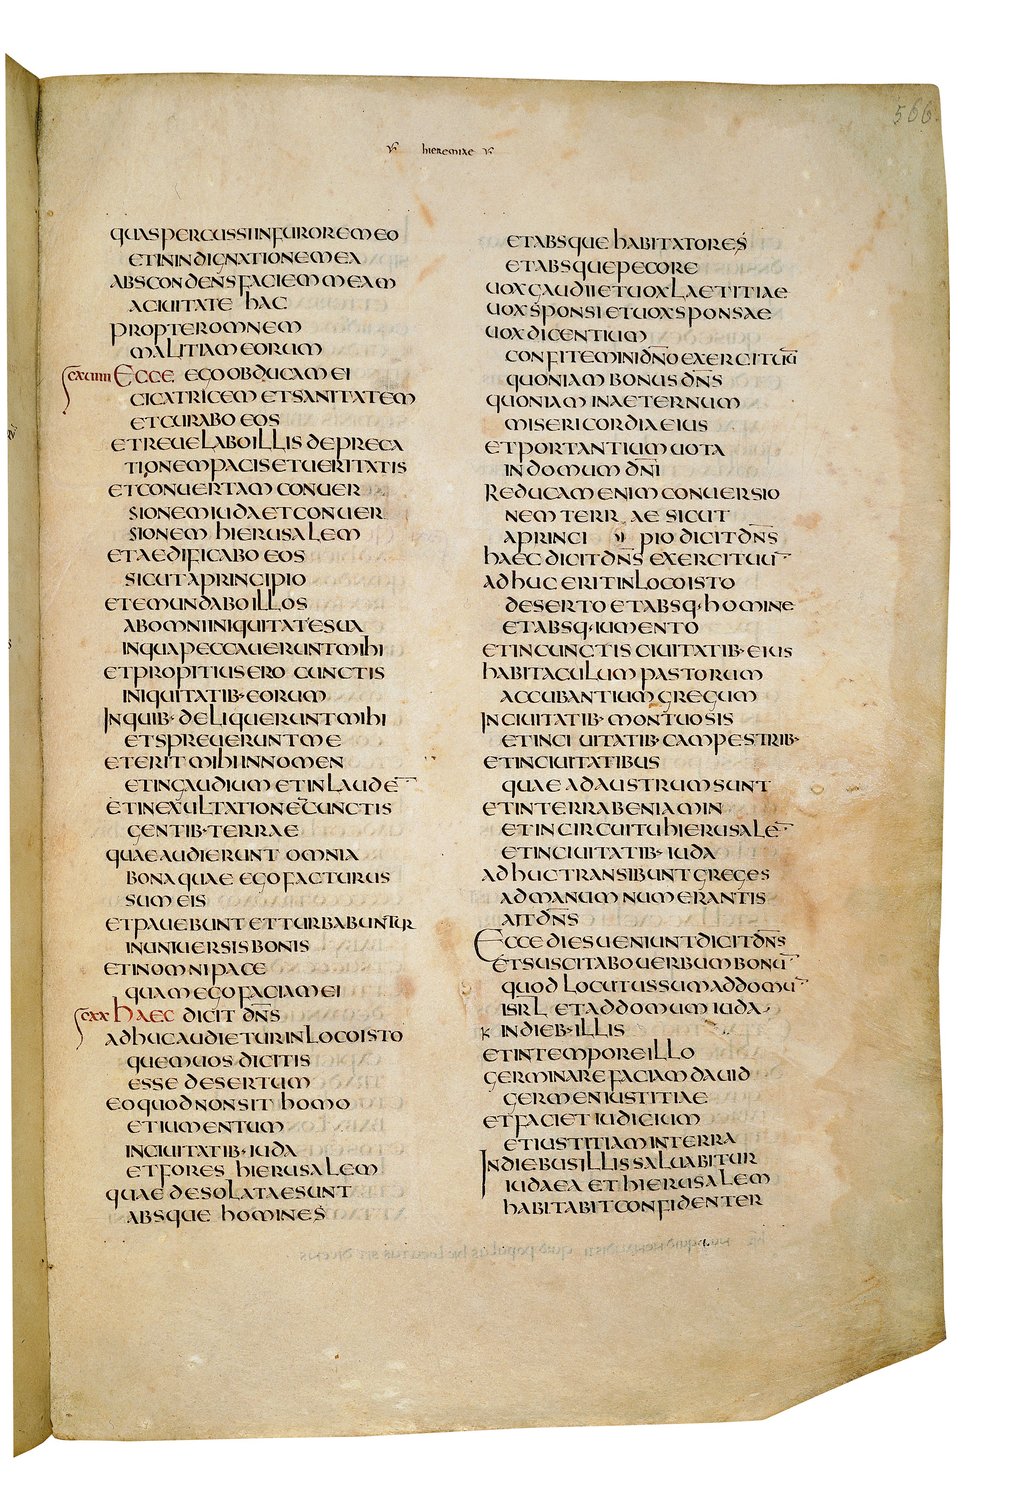 566.
hieremiae
quas percussi in furore meo
et in indignatione mea
abscondens faciem meam
a ciuitate hac
propter omnem
malitiam eorum
Ecce ego obducam ei
cicatricem et sanitatem
et curabo eos
et reuelabo illis depreca
tionem pacis et ueritatis
et conuertam conuer
sionem iuda et conuer
sionem hierusalem
et aedificabo eos
sicut a principio
et emundabo illos
ab omni iniquitate sua
in qua peccauerunt mihi
et propitius ero cunctis
iniquitatib· eorum
In quib· deliquerunt mihi
et spreuerunt me
et erit mihi in nomen
et in gaudium et in laudē
et in exultatione cunctis
gentib· terrae
quae audierunt omnia
bona quae ego facturus
sum eis
et pauebunt et turbabuntur
in uniuersis bonis
et in omni pace
quam ego faciam ei
cxx Haec dicit dn̄s
adhuc audietur in loco isto
quem uos dicitis
esse desertum
eo quod non sit homo
et iumentum
in ciuitatib· iuda
et fores hierusalem
quae desolatae sunt
absque homines
et absque habitatores
et absque pecore
uox gaudii et uox laetitiae
uox sponsi et uox sponsae
uox dicentium
confitemini dn̄o exercituū
quoniam bonus dn̄s
quoniam in aeternum
misericordia eius
et portantium uota
in domum dn̄i
Reducam enim conuersio
nem terrae sicut
a principio dicit dn̄s
haec dicit dn̄s exercituū
adhuc erit in loco isto
deserto et absq· homine
et absq· iumento
et in cunctis ciuitatib· eius
habitaculum pastorum
accubantium gregum
In ciuitatib· montuosis
et in ciuitatib· campestrib·
et in ciuitatibus
quae ad austrum sunt
et in terra beniamin
et in circuitu hierusalē
et in ciuitatib· iuda
adhuc transibunt greges
ad manum numerantis
ait dn̄s
Ecce dies ueniunt dicit dn̄s
et suscitabo uerbum bonū
quod locutus sum ad domū
isrl̄ et ad domum iuda
in dieb· illis
et in tempore illo
germinare faciam dauid
germen iustitiae
et faciet iudicium
et iustitiam in terra
In diebus illis saluabitur
iudaea et hierusalem
habitabit confidenter